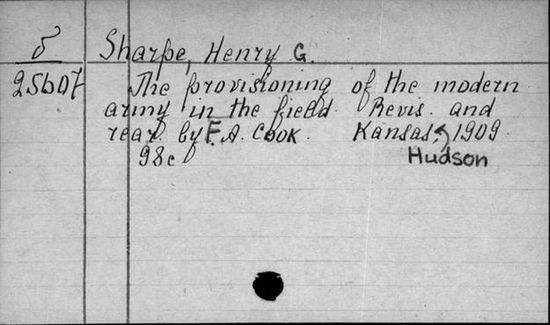 δ Sharpe, Henry G.
25607 The provisioning of the modern
army in the field Revis. and
rear by F. A. Cook. Kansas, 1909.
98c Hudson